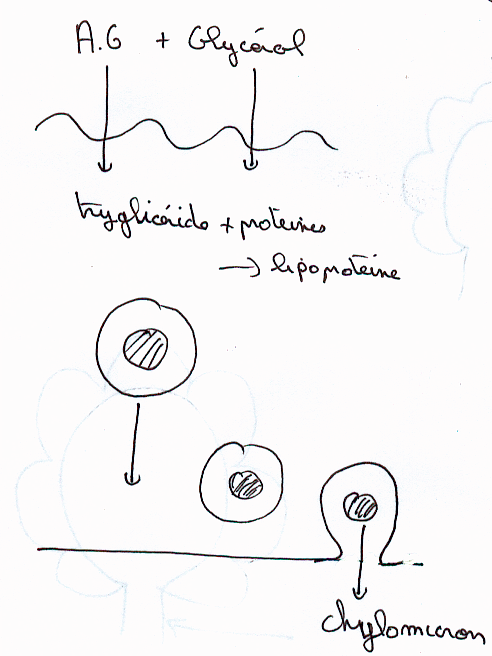 A.G + Glycérol
tryglicéride + proteines
→ lipoproteine
chylomicron